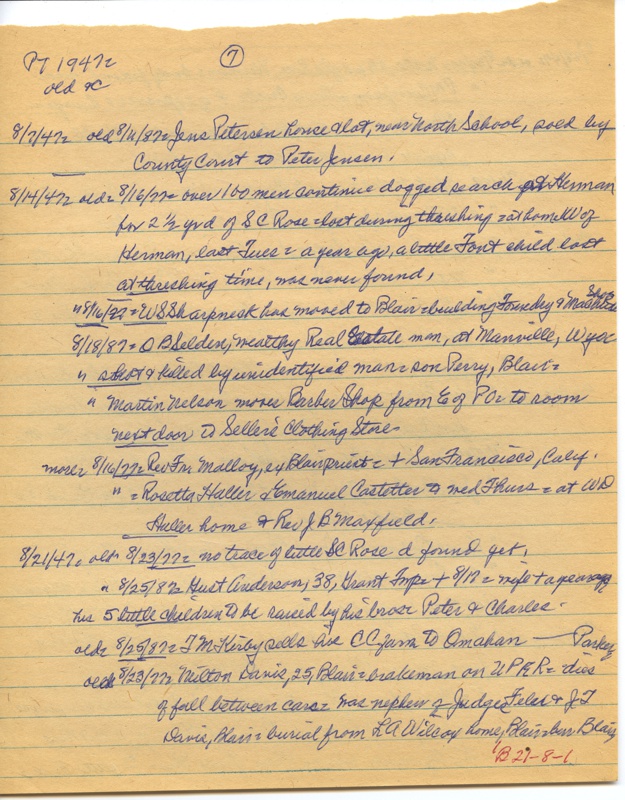 PT 1947=
⑦
old &c
8/7/47= old 8/11/87= Jens Petersen house & lot, near North School, sold by
County Court to Peter Jensen.
8/14/47= old= 8/16/77= over 100 men continue dogged search Herman
for 2 1/2 yr d of SC Rose = lost during threshing = at home W of
Herman, last Tues = a year ago, a little Font child lost
at threshing time, was never found,
" 8/16/77= WS Sharpneck has moved to Blair = building Foundry & Machine Shop
8/18/87= OB Selden, wealthy Real Estate man, at Manville, Wyo=
" shot & killed by unidentified man = son Perry, Blair=
" Martin Nelson moves Barber Shop from E of PO= to room
next door to Seller's Clothing Store=
more= 8/16/77= Rev Fr. Malloy, ex Blair priest = + San Francisco, Calif.
" = Rosetta Haller & Emanuel Castetter to wed Thurs = at WD
Haller home & Rev J B Maxfield.
8/21/47= old= 8/23/77= no trace of little SC Rose d found yet.
" 8/25/87= Gust Anderson, 38, Grant Imp= + 8/17= wife + a year ago
his 5 little children to be raised by his bros= Peter & Charles.
old= 8/25/87= TM Kirby sells his CC farm to Omahan — Parker
old= 8/23/77= Milton Davis, 25, Blair = brakeman on UPRR = dies
of fall between cars = was nephew of Judge & JT
Davis, Blair = burial from LA Wilcox home, Blair = bur Blair
B 27-8-1